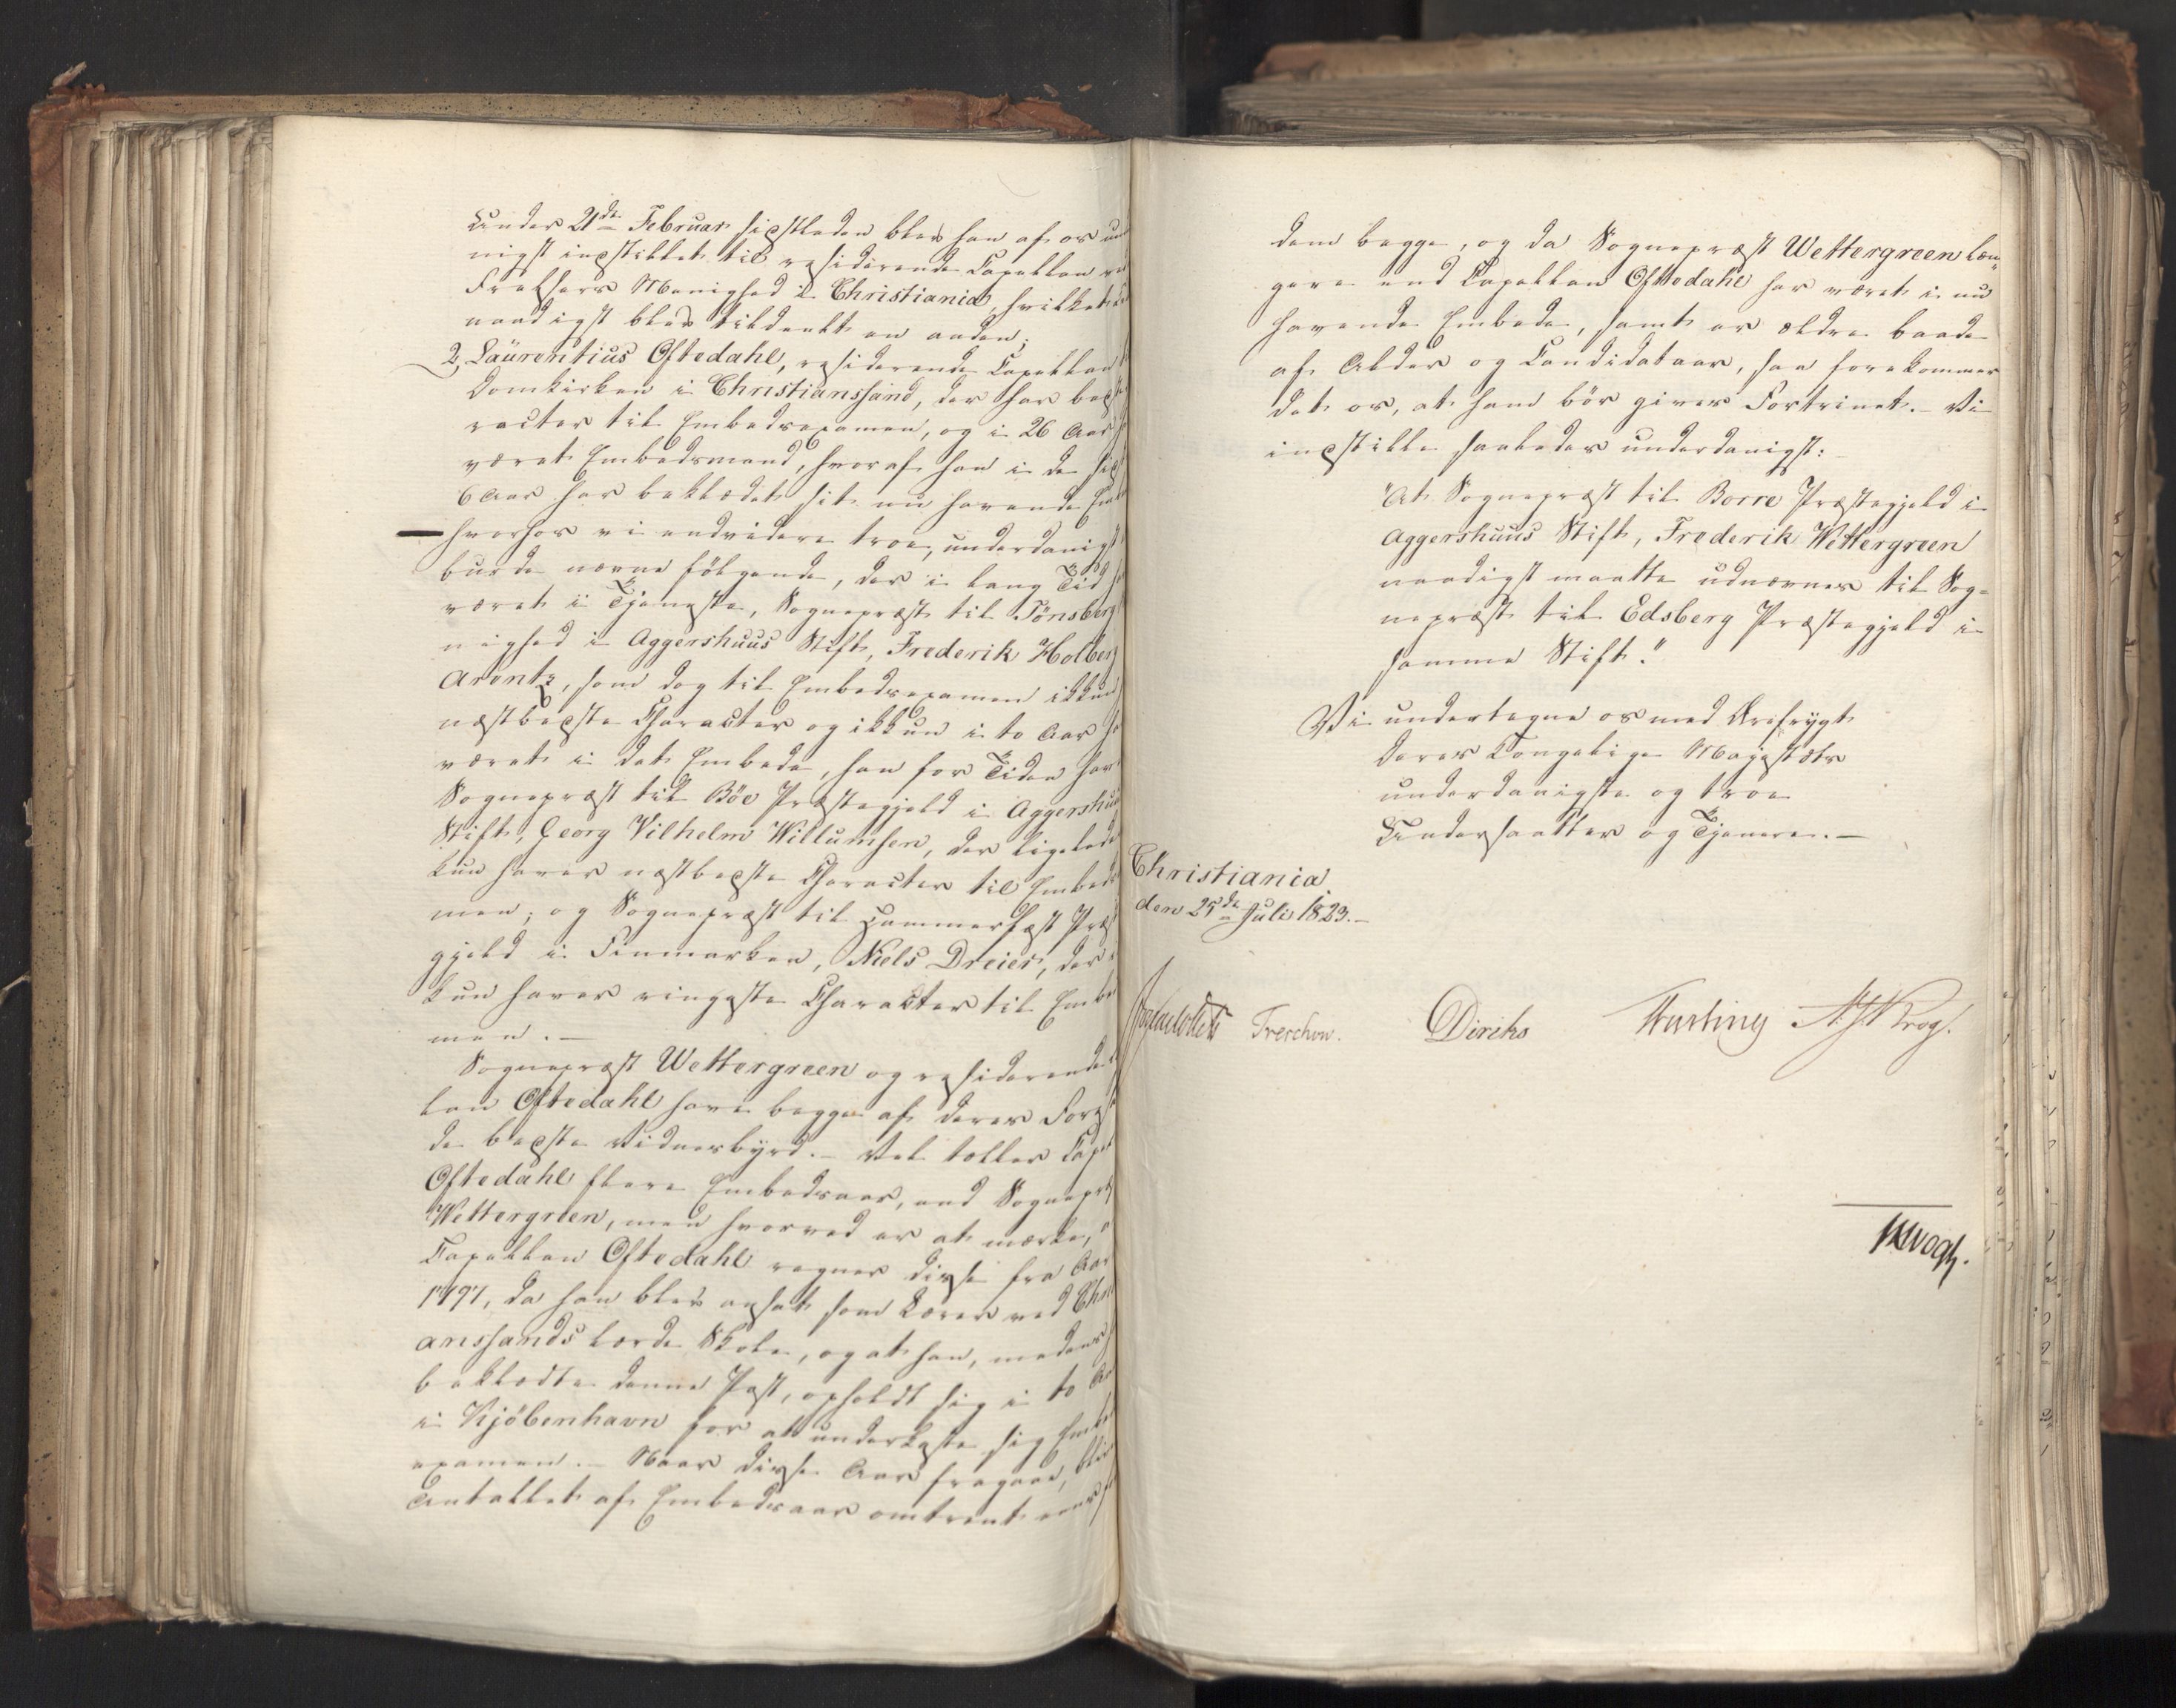 Under 21de Februar sidstleden blev han af os un
nigst indstillet til residerende Capellan ve
Frelsers Menighed i Christiania, hvilket
naadigst blev tildeelt en anden;
2, Laurentius Oftedahl, residerende Capellan
Domkirken i Christianssand, der har beds
racter til Embedsexamen, og i 26 Aar
været Embedsmand, hvoraf han i de sids
6 Aar har beklædet sit nu havende Em
hvorhos vi endvidere troe, underdanigst
burde nævne følgende, der i lang Tid
været i Tjeneste, Sognepræst til Tönsberg
nighed i Aggershuus Stift, Frederik Holberg
Arentz, som dog til Embedsexamen ikkun
næstbedste Character og ikkun i to Aar ha
været i det Embede, han for Tiden har
Sognepræst til Böe Præstegjeld i Aggershuu
Stift, Georg Vilhelm Willumsen, der ligelede
kun haver næstbedste Character til Embeds
men; og Sognepræst til Hammerfest Præs
gjeld i Finmarken, Niels Dreier, der
kun haver ringeste Character til Embe
men.—
Sognepræst Wettergreen og residerende
lan Oftedahl have begge af deres Fores
de bedste Vidnesbyrd.— Vel tæller Capel
Oftedahl flere Embedsaar, end Sognepræ
Wettergreen, men hvorved er at mærke,
Capellan Oftedahl regner disse fra Aar
1797, da han blev ansat som Lærer ved Chri
anssands lærde Skole, og at han, medens
beklædte denne Post, opholdt sig i to Aa
i Kjöbenhavn for at underkaste sig Embe
examen.— Naar disse Aar fragaae, bliv
Antallet af Embedsaar omtrent eens
dem begge, og da Sognepræst Wettergreen læn
gere end Capellan Oftedahl har været i nu
havende Embede, samt er ældre baade
af Alder og Candidataar, saa forekommer
det os, at ham bör gives Fortrinet.— Vi
indstille saaledes underdanigst:
"At Sognepræst til Borre Præstegjeld i
Aggershuus Stift, Frederik Wettergreen
naadigst maatte udnævnes til Sog-
nepræst til Edsberg Præstegjeld i
samme Stift."
Vi undertegne os med Ærefrygt
Deres Kongelige Majestæts
underdanigste og troe
Undersaatter og Tjenere.—
Christiania
den 25de Juli 1823.—
Treschow. Diriks
Krog.